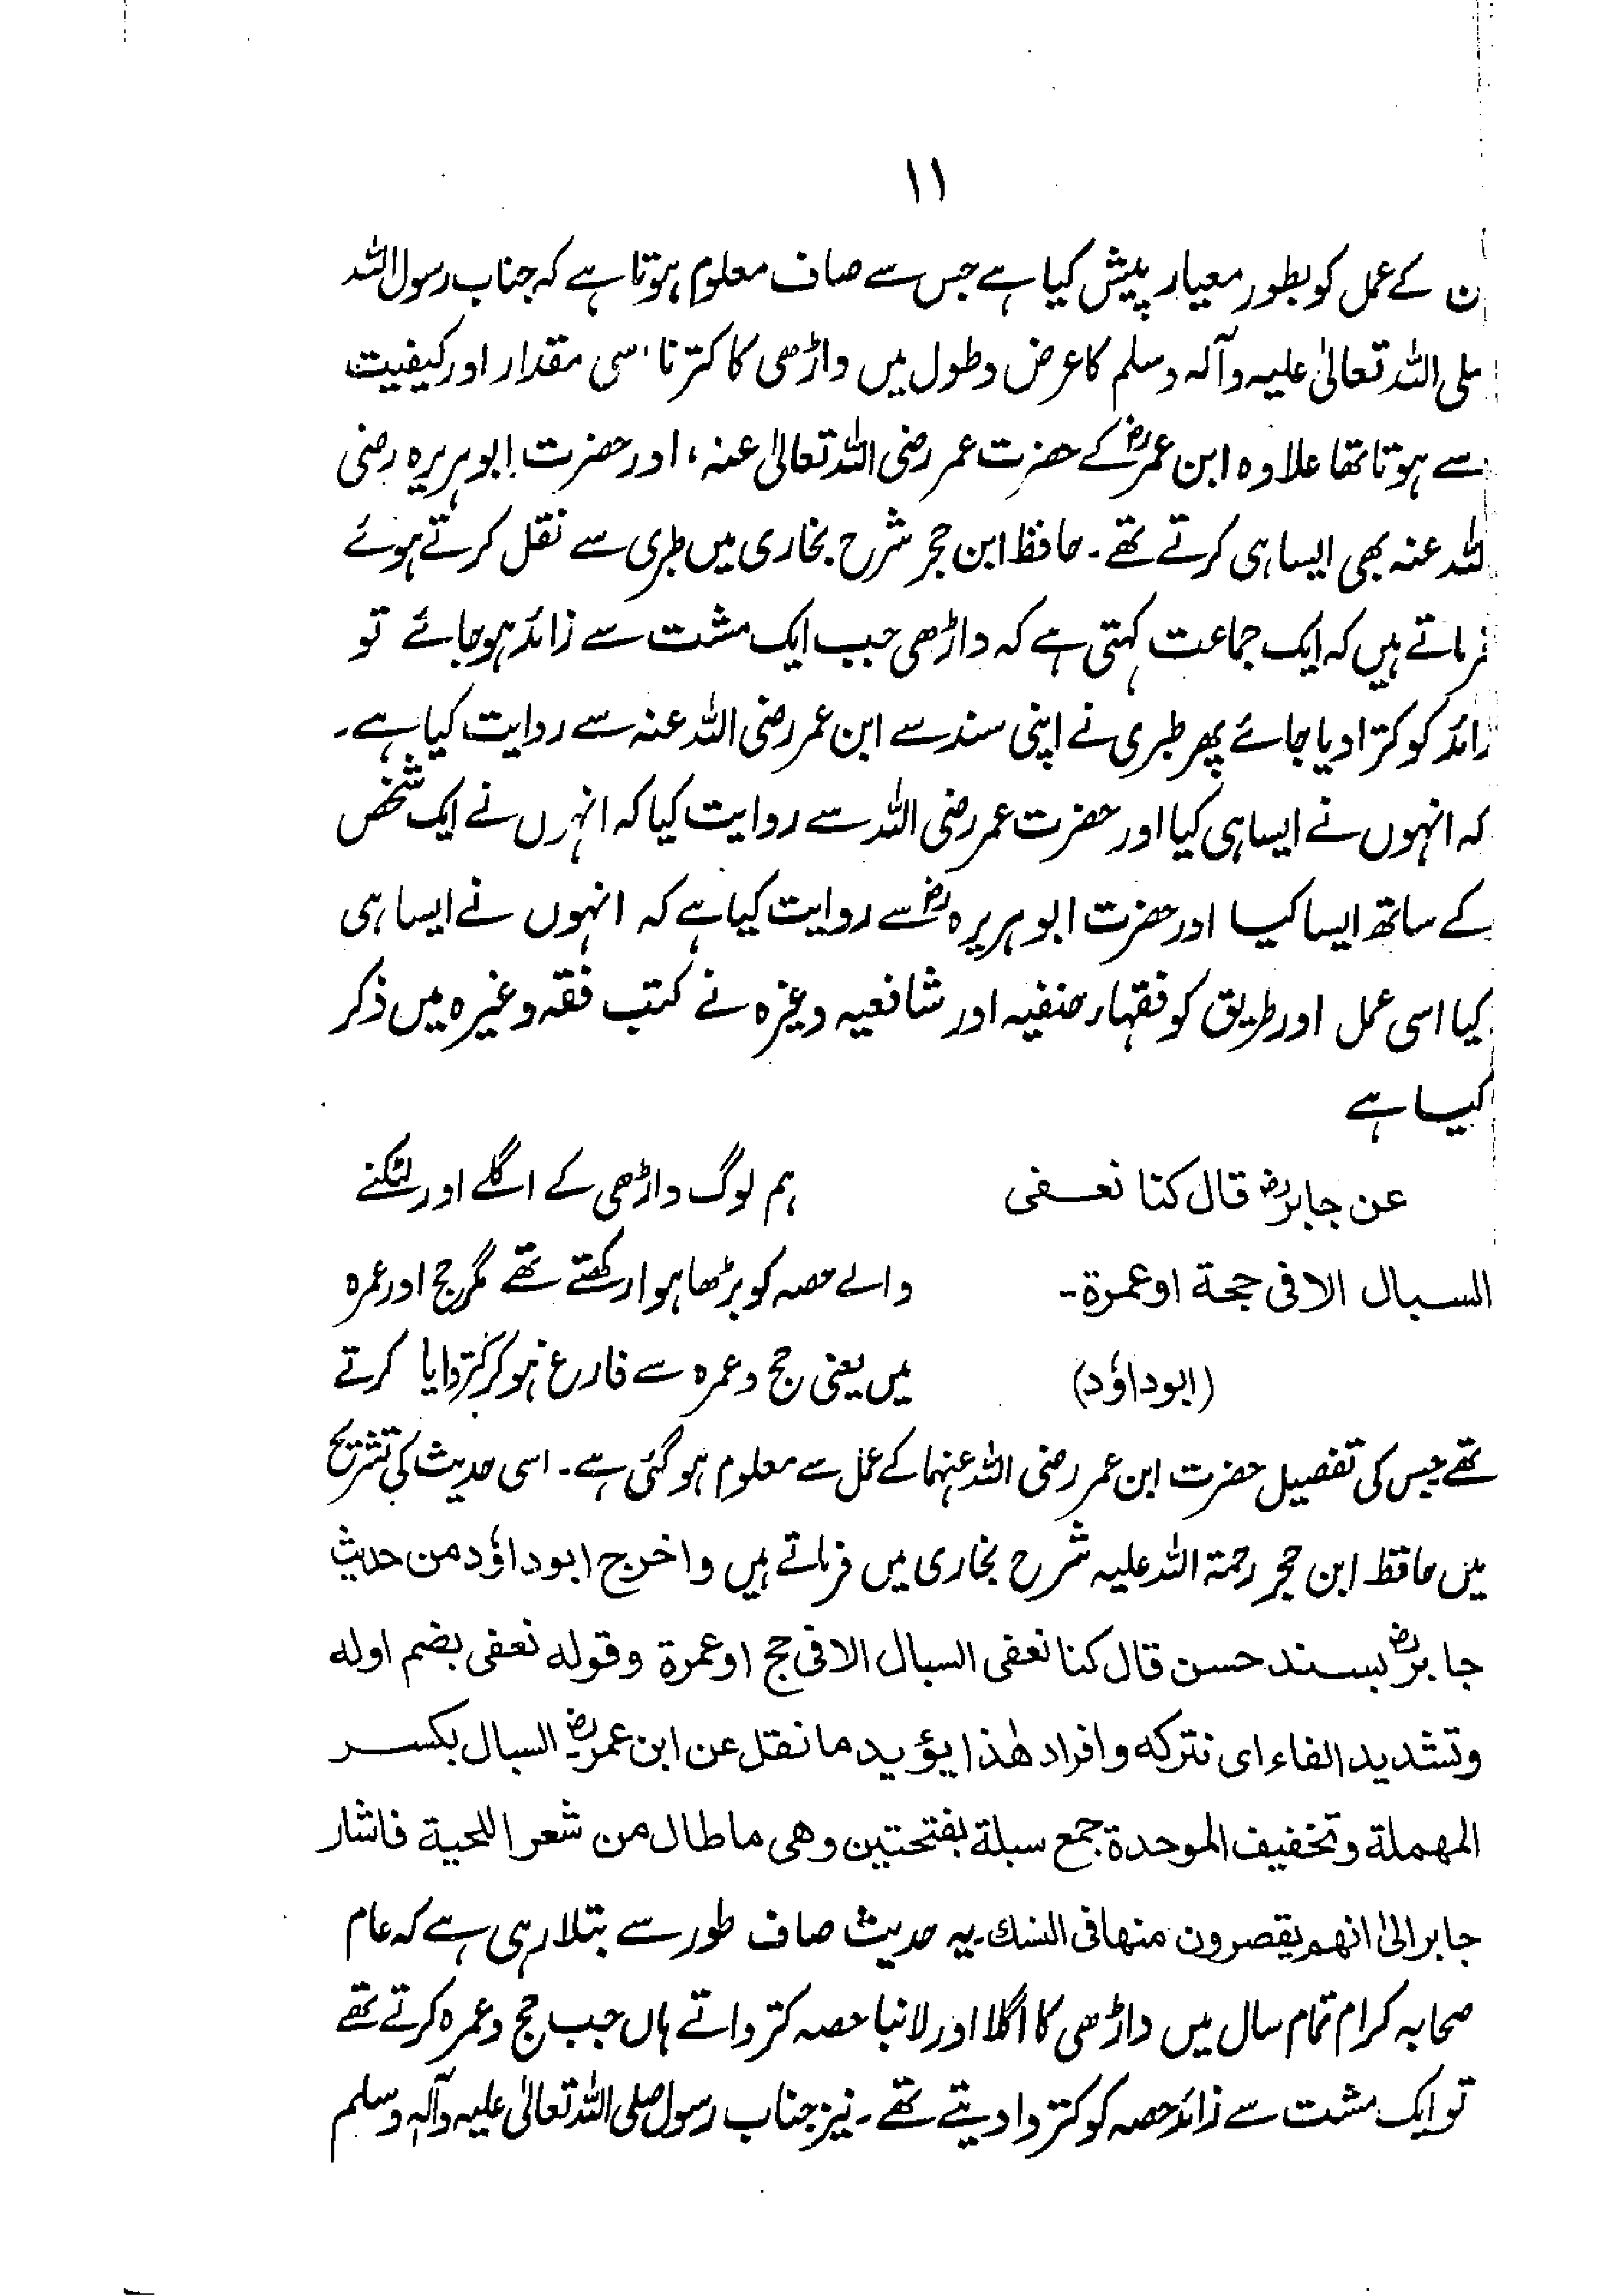 ۱۱
ن کے عمل کو بطور معیار پیش کیا ہے جس سے صاف معلوم ہوتا ہے کہ جناب رسول اللہ
ملی اللہ تعالیٰ علیہ وآلہ وسلم کا عرض وطول میں داڑھی کا کترنا اسی مقدار اور کیفیت
سے ہوتا تھا علاوہ ابن عمرؓ کے حضرت عمر رضی اللہ تعالیٰ عنہ، اور حضرت ابوہریرہ رضی
للہ عنہ بھی ایسا ہی کرتے تھے۔ حافظ ابن حجر شرح بخاری میں طبری سے نقل کرتے ہوئے
فرماتے ہیں کہ ایک جماعت کہتی ہے کہ داڑھی جب ایک مشت سے زائد ہوجائے تو
زائد کو کترا دیا جائے پھر طبری نے اپنی سند سے ابن عمر رضی اللہ عنہ سے روایت کیا ہے۔
کہ انہوں نے ایسا ہی کیا اور حضرت عمر رضی اللہ سے روایت کیا کہ انہوں نے ایک شخص
کے ساتھ ایسا کیا اور حضرت ابوہریرہؓ سے روایت کیا ہے کہ انہوں نے ایسا ہی
کیا اسی عمل اور طریق کو فقہاء حنفیہ اور شافعیہ وغیرہ نے کتب فقہ وغیرہ میں ذکر
کیا ہے
عن جابرؓ قال کنا نعفی ہم لوگ داڑھی کے اگلے اور لٹکنے
السبال الا فی حجة او عمرة۔ والے حصہ کو بڑھا ہوا رکھتے تھے مگر حج اور عمرہ
(ابوداؤد) میں یعنی حج وعمرہ سے فارغ ہو کر کتروایا کرتے
تھے جس کی تفصیل حضرت ابن عمر رضی اللہ عنہما کے عمل سے معلوم ہو گئی ہے۔ اسی حدیث کی تشریح
میں حافظ ابن حجر رحمۃ اللہ علیہ شرح بخاری میں فرماتے ہیں واخرج ابوداؤد من حدیث
جابرؓ بسند حسن قال کنا نعفی السبال الا فی حج او عمرة وقوله نعفی بضم اوله
وتشدید الفاء ای نترکه وافراد هٰذا یؤید ما نقل عن ابن عمرؓ۔ السبال بکسر
المهملة وتخفیف الموحدة جمع سبلة بفتحتین وهی ما طال من شعر اللحیة فاشار
جابر الیٰ انهم یقصرون منها فی النسك۔ یہ حدیث صاف طور سے بتلا رہی ہے کہ عام
صحابہ کرام تمام سال میں داڑھی کا اگلا اور لانبا حصہ کترواتے ہاں جب حج وعمرہ کرتے تھے
تو ایک مشت سے زائد حصہ کو کتروا دیتے تھے۔ نیز جناب رسول صلی اللہ تعالیٰ علیہ وآلہٖ وسلم